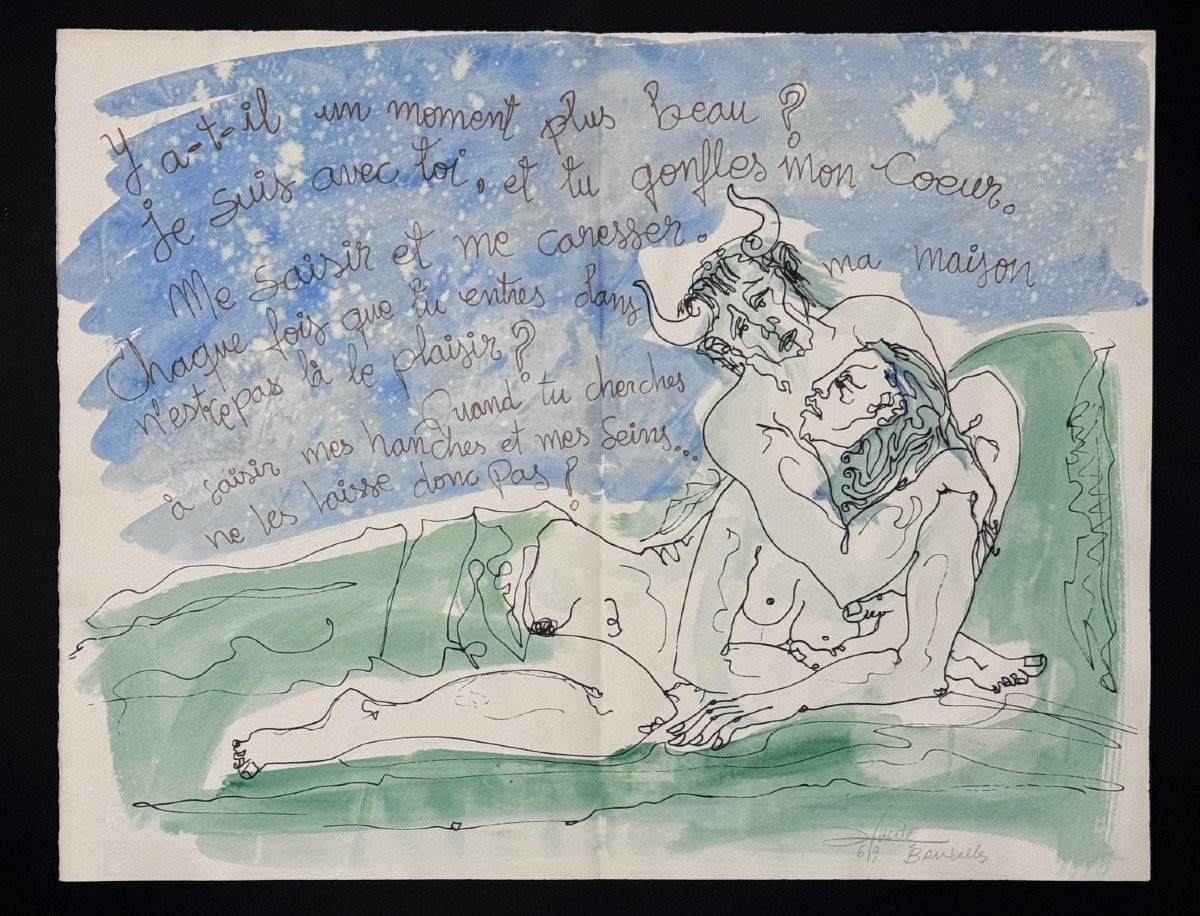 Y a-t-il un moment plus beau ?
je suis avec toi, et tu gonfles mon Coeur.
Me saisir et me caresser.
Chaque fois que tu entres dans ma maison
n'est-ce pas là le plaisir ?
Quand tu cherches
à saisir mes hanches et mes Seins...
ne les laisse donc pas !
6/9 Bruxelles